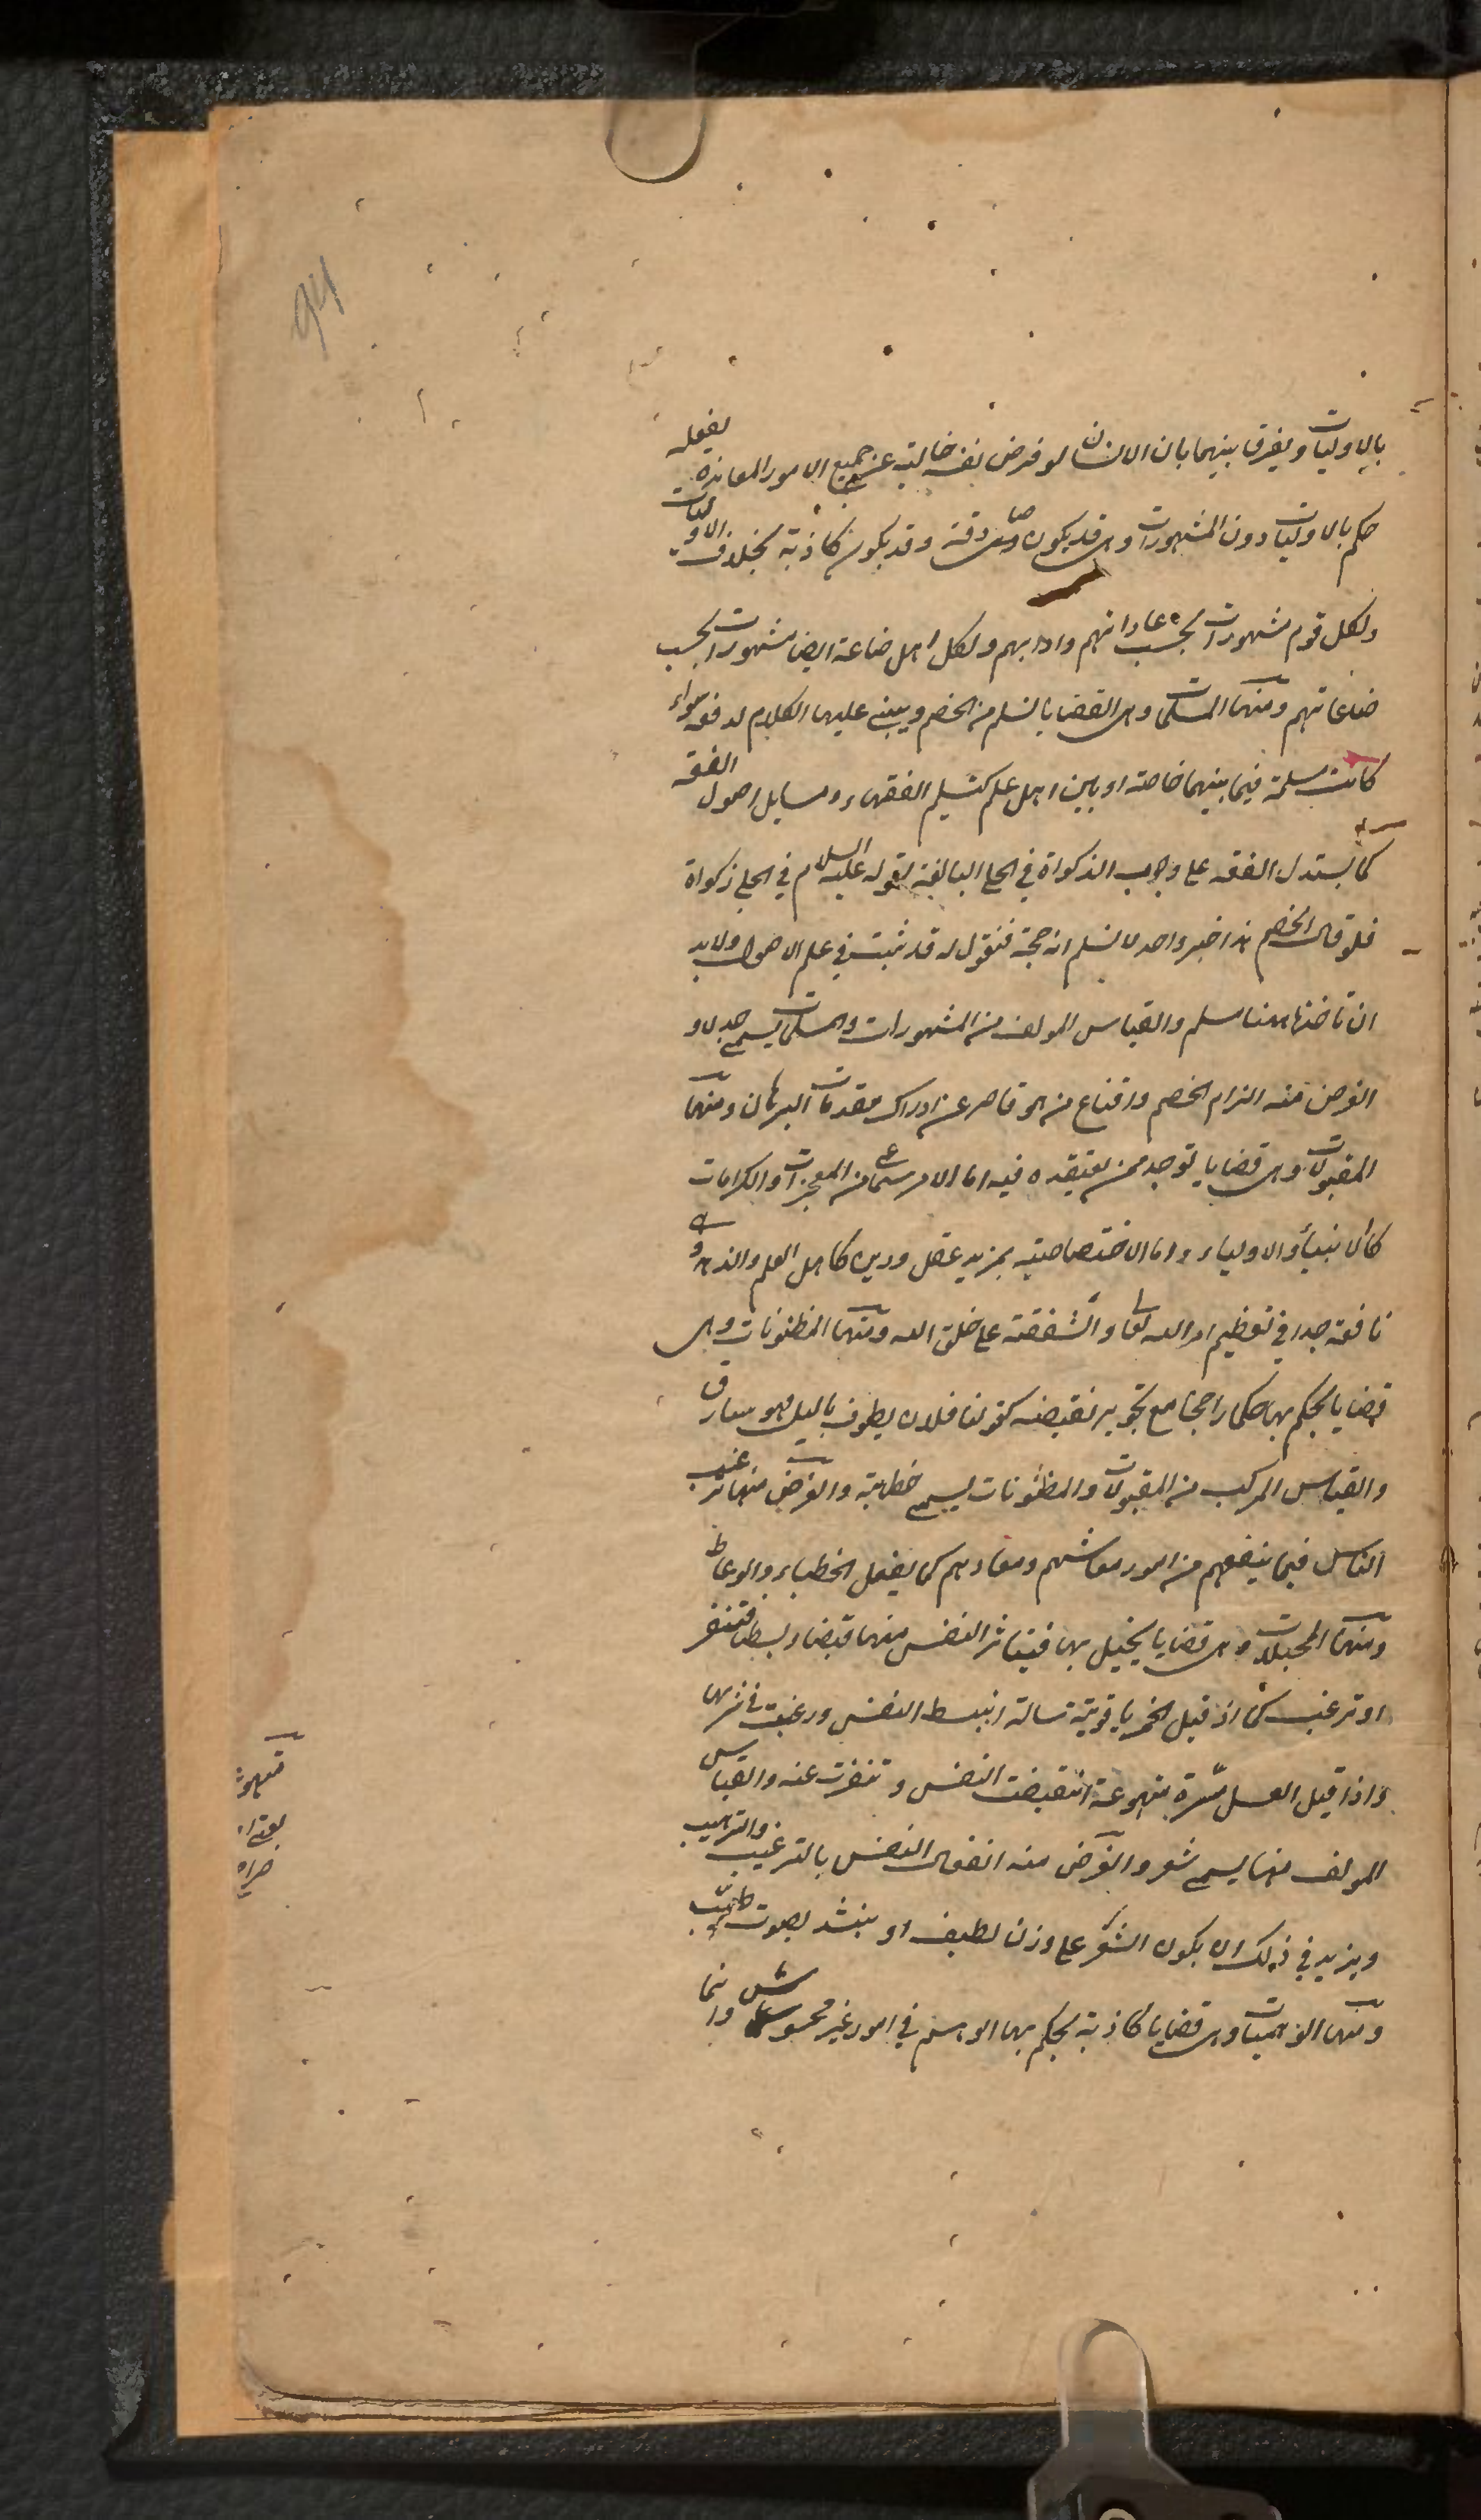 94
بالاوليات ويفرق بينهما بان الانسان لو فرض نفسه خالية عن جميع الامور المغايرة لعقله
حكم بالاوليات دون المشهورات وهى قد يكون صادقة وقد يكون كاذبة بخلاف الاوليات
ولكل قوم مشهورات بحسب عاداتهم وادابهم ولكل اهل صناعة ايضا مشهورات بحسب
صناعاتهم ومنها المسلمات وهى القضايا تسلم من الخصم ويبنى عليها الكلام لدفعه سواء
كانت مسلمة فيما بينهما خاصة او بين اهل علم كتسليم الفقهاء مسايل اصول الفقه
كما يستدل الفقه على وجوب الزكواة فى الحلى البالغة لقوله عليه السلام فى الحلى زكواة
فلو قال الخصم هذا خبر واحد لا نسلم انه حجة فنقول له قد ثبت فى علم الاصول ولا بد
ان تاخذها هنا مسلم والقياس المولف من المشهورات والمسلمات يسمى جدلا و
الغرض منه الزام الخصم واقناع من هو قاصر عن ادراك مقدمات البرهان ومنها
المقبولات وهى قضايا توجد ممن يعتقده فيه اما لامر سماعى من المعجزات والكرامات
كالانبياء والاولياء واما الاختصاصية بمزيد عقل ودين كاهل العلم والزهد وهى
نافعة جدا فى تعظيم امر الله تعالى والشفقة على خلق الله ومنها المظنونات وهى
قضايا يحكم بها حكما راجحا مع تجويز نقيضه كقولنا فلان يطوف بالليل فهو سارق
والقياس المركب من المقبولات والمظنونات يسمى خطابة والغرض منها ترغيب
الناس فيما ينفعهم من امور معاشهم ومعادهم كما يفعل الخطباء والوعاظ
ومنها المخيلات وهى قضايا يخيل بها فيتاثر النفس منها قبضا وبسطا فتنفر
او ترغب كما اذ قيل الخمر ياقوتية سيالة انبسط النفس ورغبت فى شربها
واذا قيل العسل مرة مهوعة انقبضت النفس وتنفرت عنه والقياس
المولف منها يسمى شعر والغرض منه انفعال النفس بالترغيب والترهيب
ويزيد فى ذلك ان يكون الشعر على وزن لطيف او ينشد بصوت طيب
ومنها الوهميات وهى قضايا كاذبة يحكم بها الوهم فى امور غير محسوسة وانما